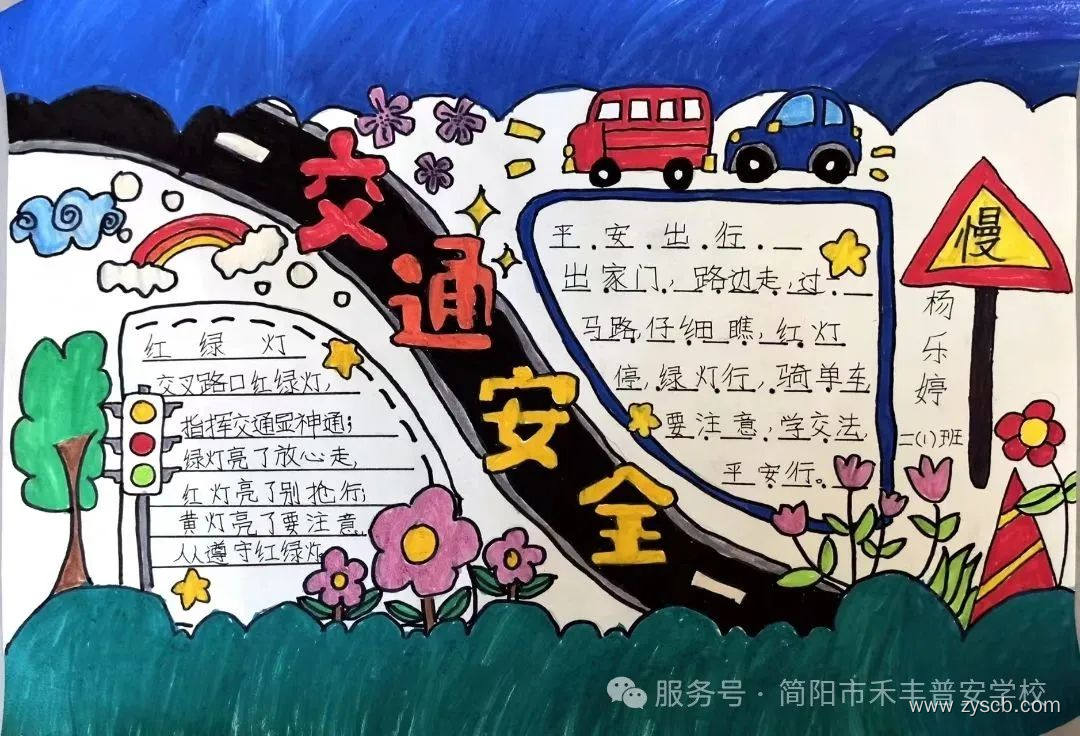 交通安全
红绿灯
交叉路口红绿灯,
指挥交通显神通;
绿灯亮了放心走,
红灯亮了别抢行;
黄灯亮了要注意,
人人遵守红绿灯
平安出行
出家门,路边走,过
马路,仔细瞧,红灯
停,绿灯行,骑单车
要注意,学交法,
平安行。
慢
杨乐婷
二(1)班
服务号·简阳市禾丰普安学校
www.zyscb.com